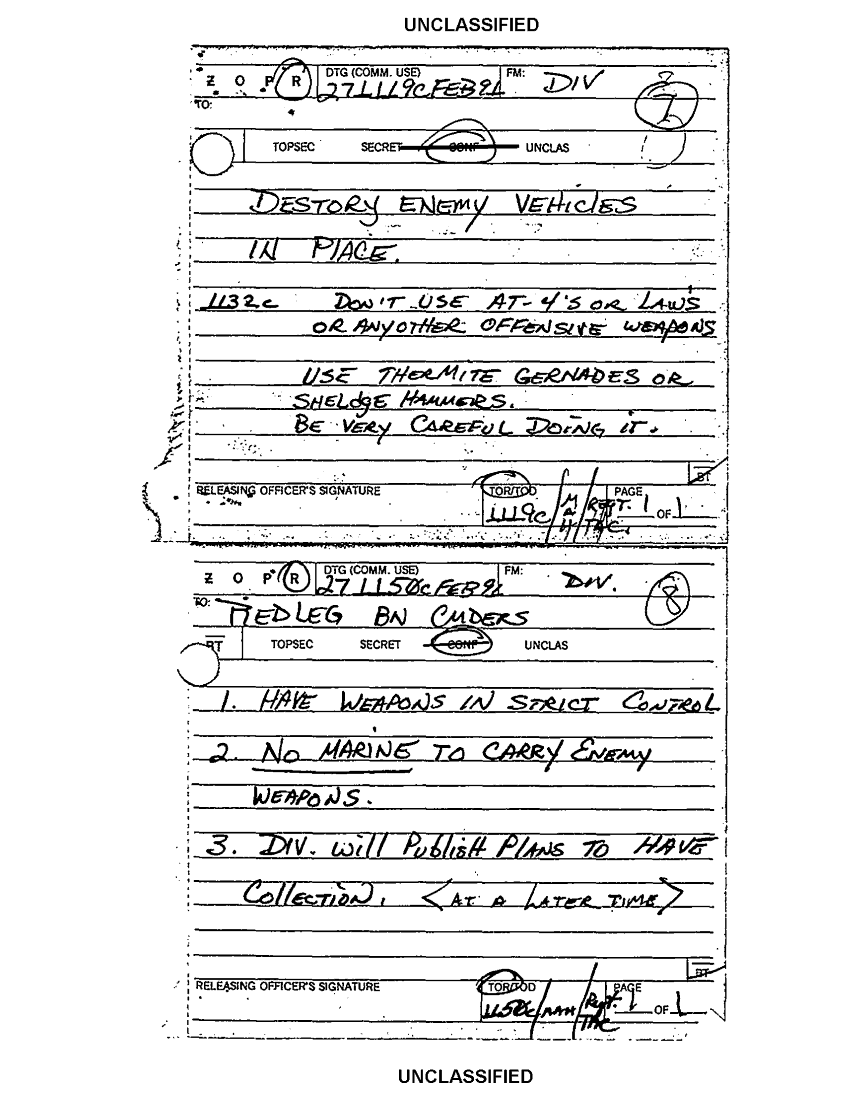 UNCLASSIFIED
Z O P R DTG (COMM. USE) FM: DIV
271119C FEB 91 7
TO:
TOPSEC SECRET CONF UNCLAS
DESTORY ENEMY VEHICLES
IN PLACE.
1132C DON'T USE AT-4'S OR LAWS
OR ANYOTHER OFFENSIVE WEAPONS
USE THERMITE GERNADES OR
SHELDGE HAMMERS.
BE VERY CAREFUL DOING IT.
BT
RELEASING OFFICER'S SIGNATURE TOR/TOD PAGE
1119C / MAH / Regt. TAC. 1 OF 1
Z O P R DTG (COMM. USE) FM: DIV.
271150C FEB 91 8
TO: REDLEG BN CMDERS
BT TOPSEC SECRET CONF UNCLAS
1. HAVE WEAPONS IN STRICT CONTROL
2. NO MARINE TO CARRY ENEMY
WEAPONS.
3. DIV. will Publish PLANS TO HAVE
Collection. < AT A LATER TIME >
BT
RELEASING OFFICER'S SIGNATURE TOR/TOD PAGE
1150C / MAH / Rgt. TAC 1 OF 1
UNCLASSIFIED